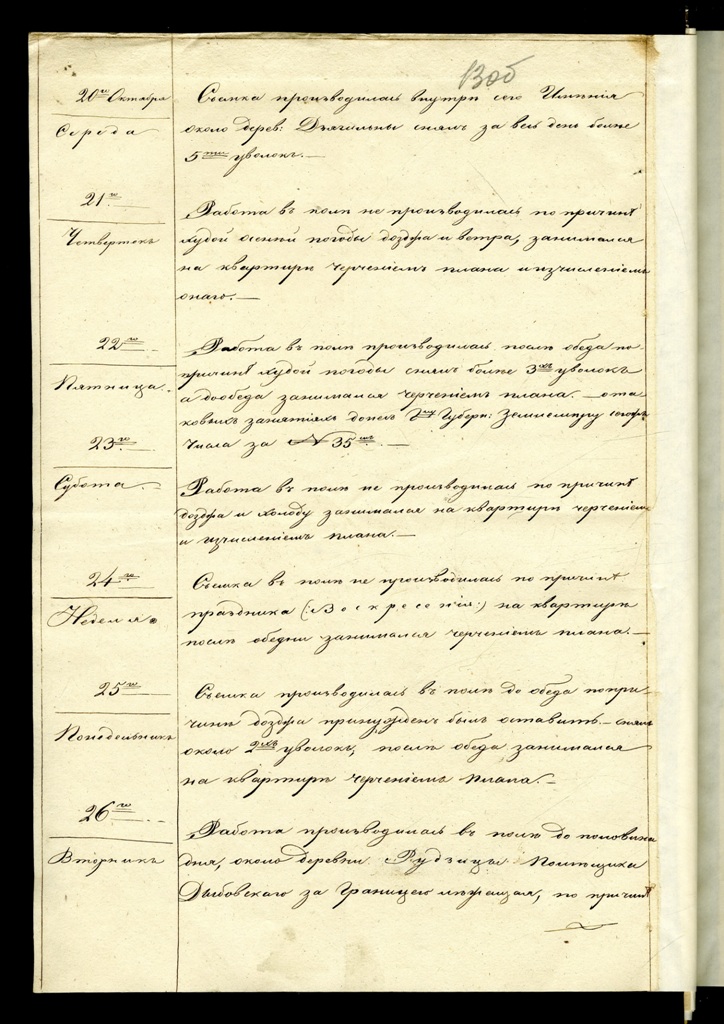 130б
20го Октября
Середа
Съемка производилась внутри сего Имѣнія
около дерев: Дьягильны снялъ за весь день болѣе
5ти уволокъ.—
21го
Четвертокъ
Работа въ полѣ не производилась по причинѣ
худой осеней погоды дождя и вѣтра, занимался
на квартирѣ черченіемъ плана и изчисленіемъ
онаго.—
22го
Пятница
Работа въ полѣ производилась послѣ обеда по
причинѣ худой погоды снялъ болѣе 3хъ уволокъ
а до обеда занимался черченіемъ плана.— о та
ковыхъ занятіяхъ донесъ Гну Губерн: Землемѣру сего
числа за № 35мъ.—
23го
Субота.—
Работа въ полѣ не производилась по причинѣ
дождя и холоду занимался на квартирѣ черченіемъ
и изчисленіемъ плана.—
24го
Неделя
Съемка въ полѣ не производилась по причинѣ
праздника (:Воскресенія:) на квартирѣ
послѣ обедни занимался черченіемъ плана.—
25го
Понедельникъ
Съемка производилась въ полѣ до обеда по при-
чинѣ дождя принужденъ былъ оставить.— снялъ
около 2хъ уволокъ, послѣ обеда занимался
на квартирѣ черченіемъ плана.—
26го
Вторникъ
Работа производилась въ полѣ до половины
дня, около деревни Рудзицы Помѣщика
Дыбовскаго за границею лѣжащая, по причинѣ